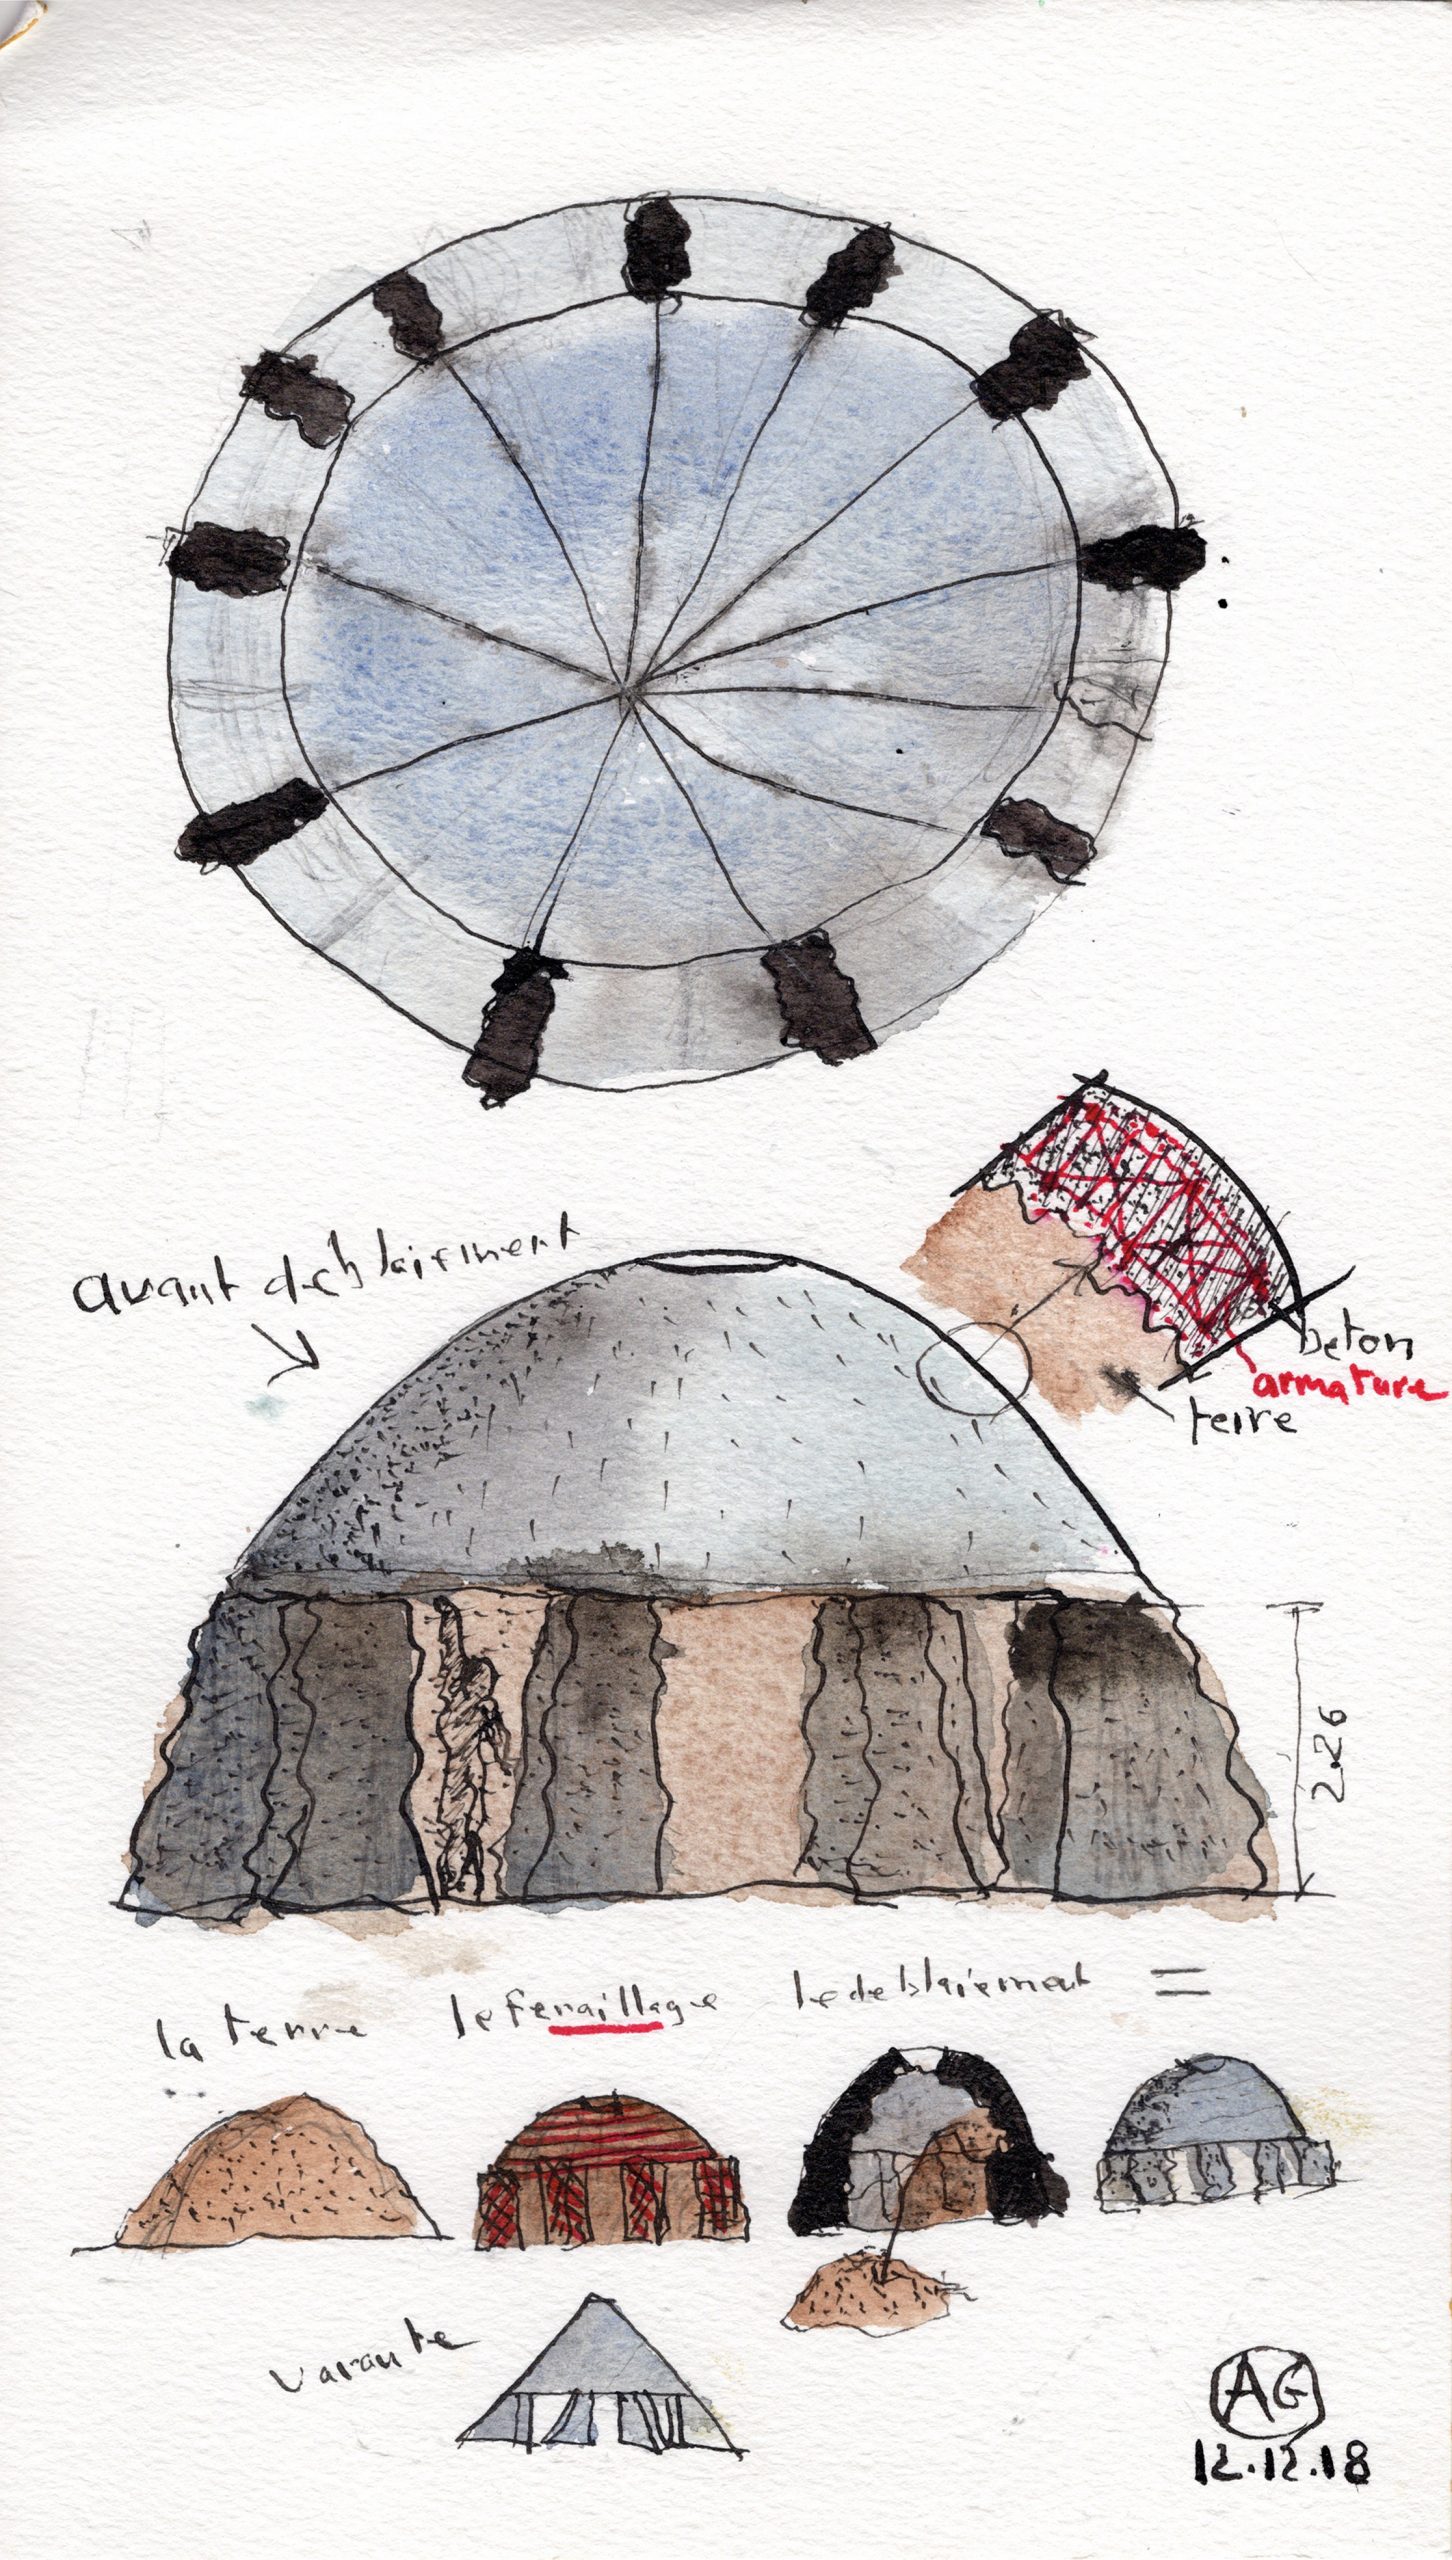 avant deblaiement
beton
armature
terre
2.26
la terre le ferraillage le deblaiement =
varante
AG
12.12.18